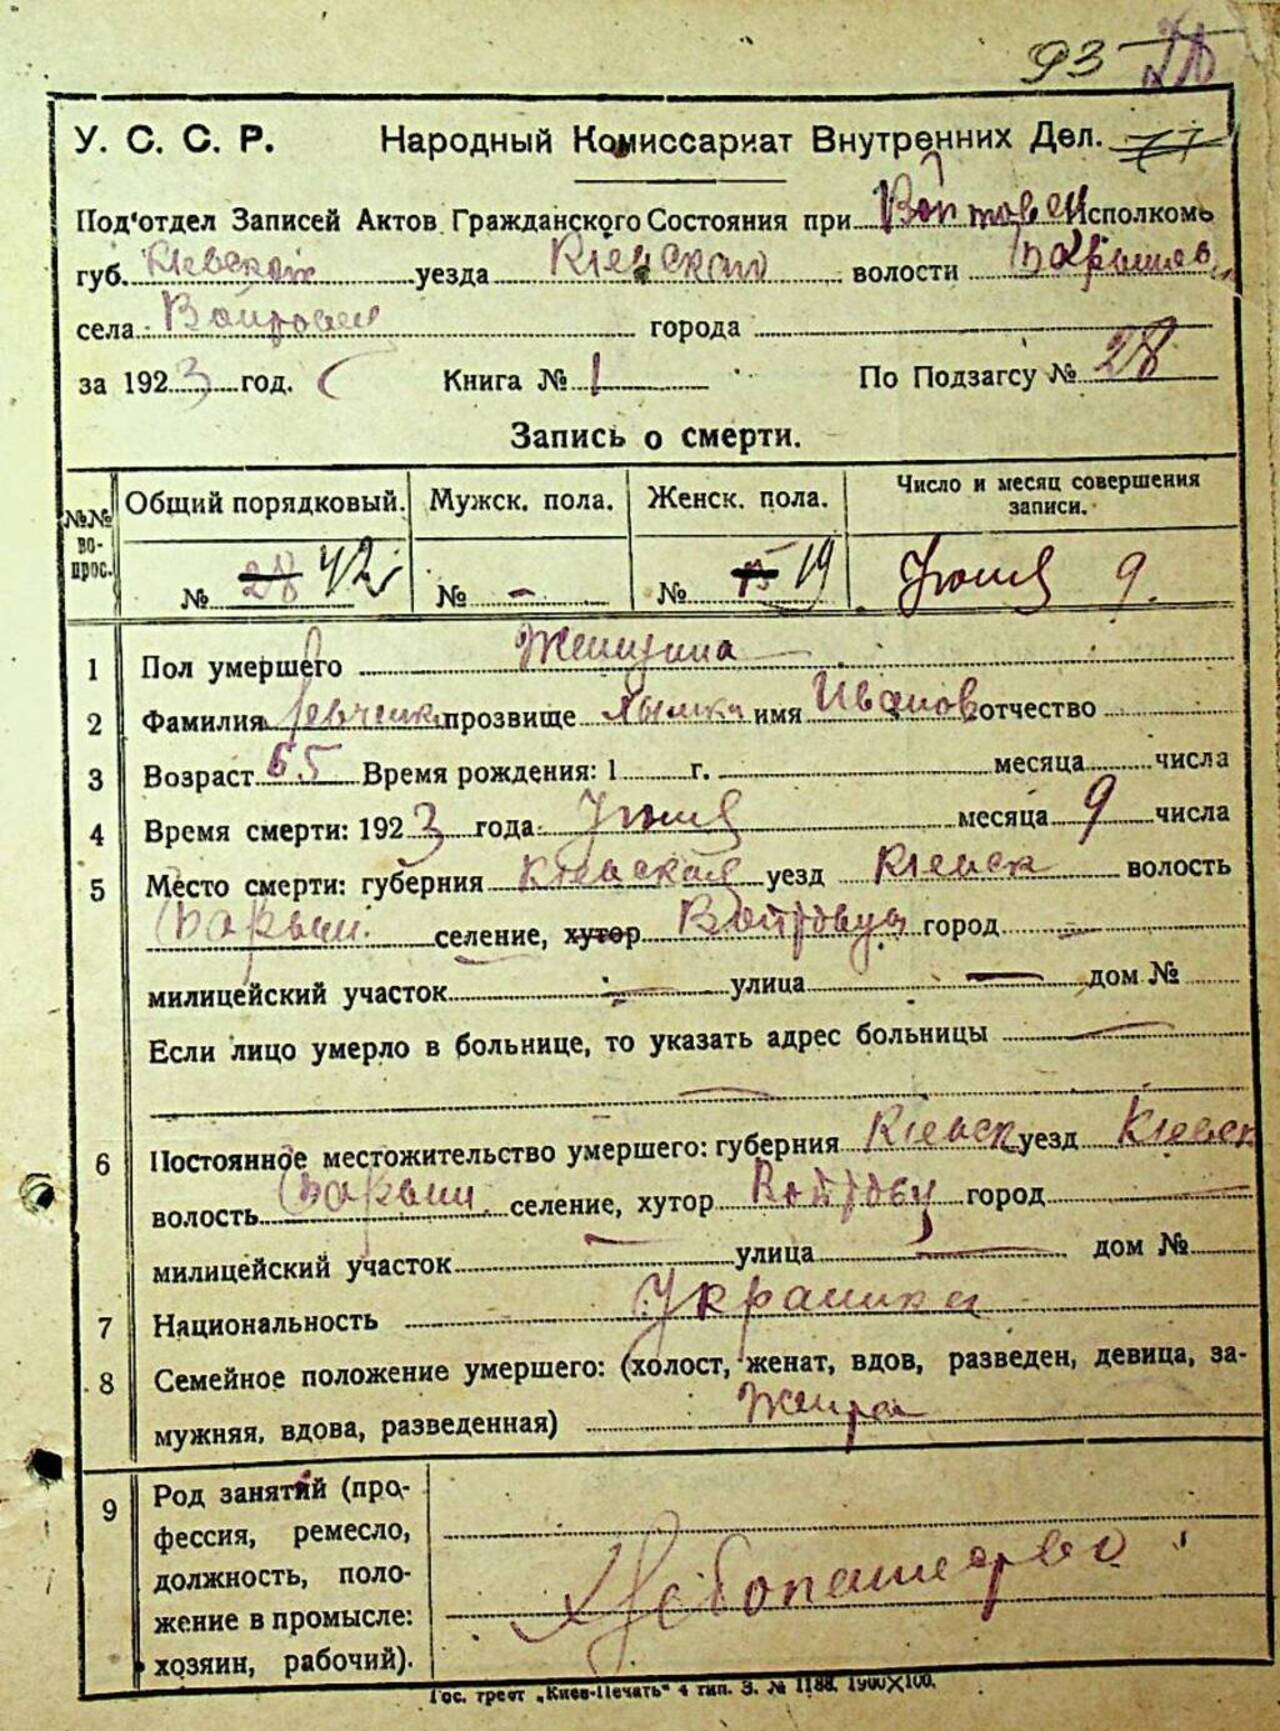 93
У. С. С. Р. Народный Комиссариат Внутренних Дел. 77
Под‘отдел Записей Актов Гражданского Состояния при Войтовец Исполкомѣ
губ. Киевской уезда Кіевского волости Барышев
села Войтовец города
за 1923 год. Книга № 1 По Подзагсу № 28
Запись о смерти.
№№ во-прос. Общий порядковый. Мужск. пола. Женск. пола. Число и месяц совершения записи.
№ 28 42 № - № 19 Июня 9.
1 Пол умершего Женщина
2 Фамилия Левченко прозвище имя Иванов отчество
3 Возраст 65 Время рождения: 1 г. месяца числа
4 Время смерти: 1923 года Июня месяца 9 числа
5 Место смерти: губерния Кіевская уезд Кіевск волость
Барыш. селение, хутор Войтовцы город —
милицейский участок — улица — дом №
Если лицо умерло в больнице, то указать адрес больницы —
—
6 Постоянное местожительство умершего: губерния Кіевск уезд Кіевск
волость Барыш. селение, хутор Войтовц город —
милицейский участок — улица — дом №
7 Национальность
8 Семейное положение умершего: (холост, женат, вдов, разведен, девица, за-
мужняя, вдова, разведенная)
9 Род занятий (про-
фессия, ремесло,
должность, поло-
жение в промысле:
хозяин, рабочий).
Хлебопашество
Гос. трест „Киев-Печать“ 4 тип. З. № 1188. 1900×100.